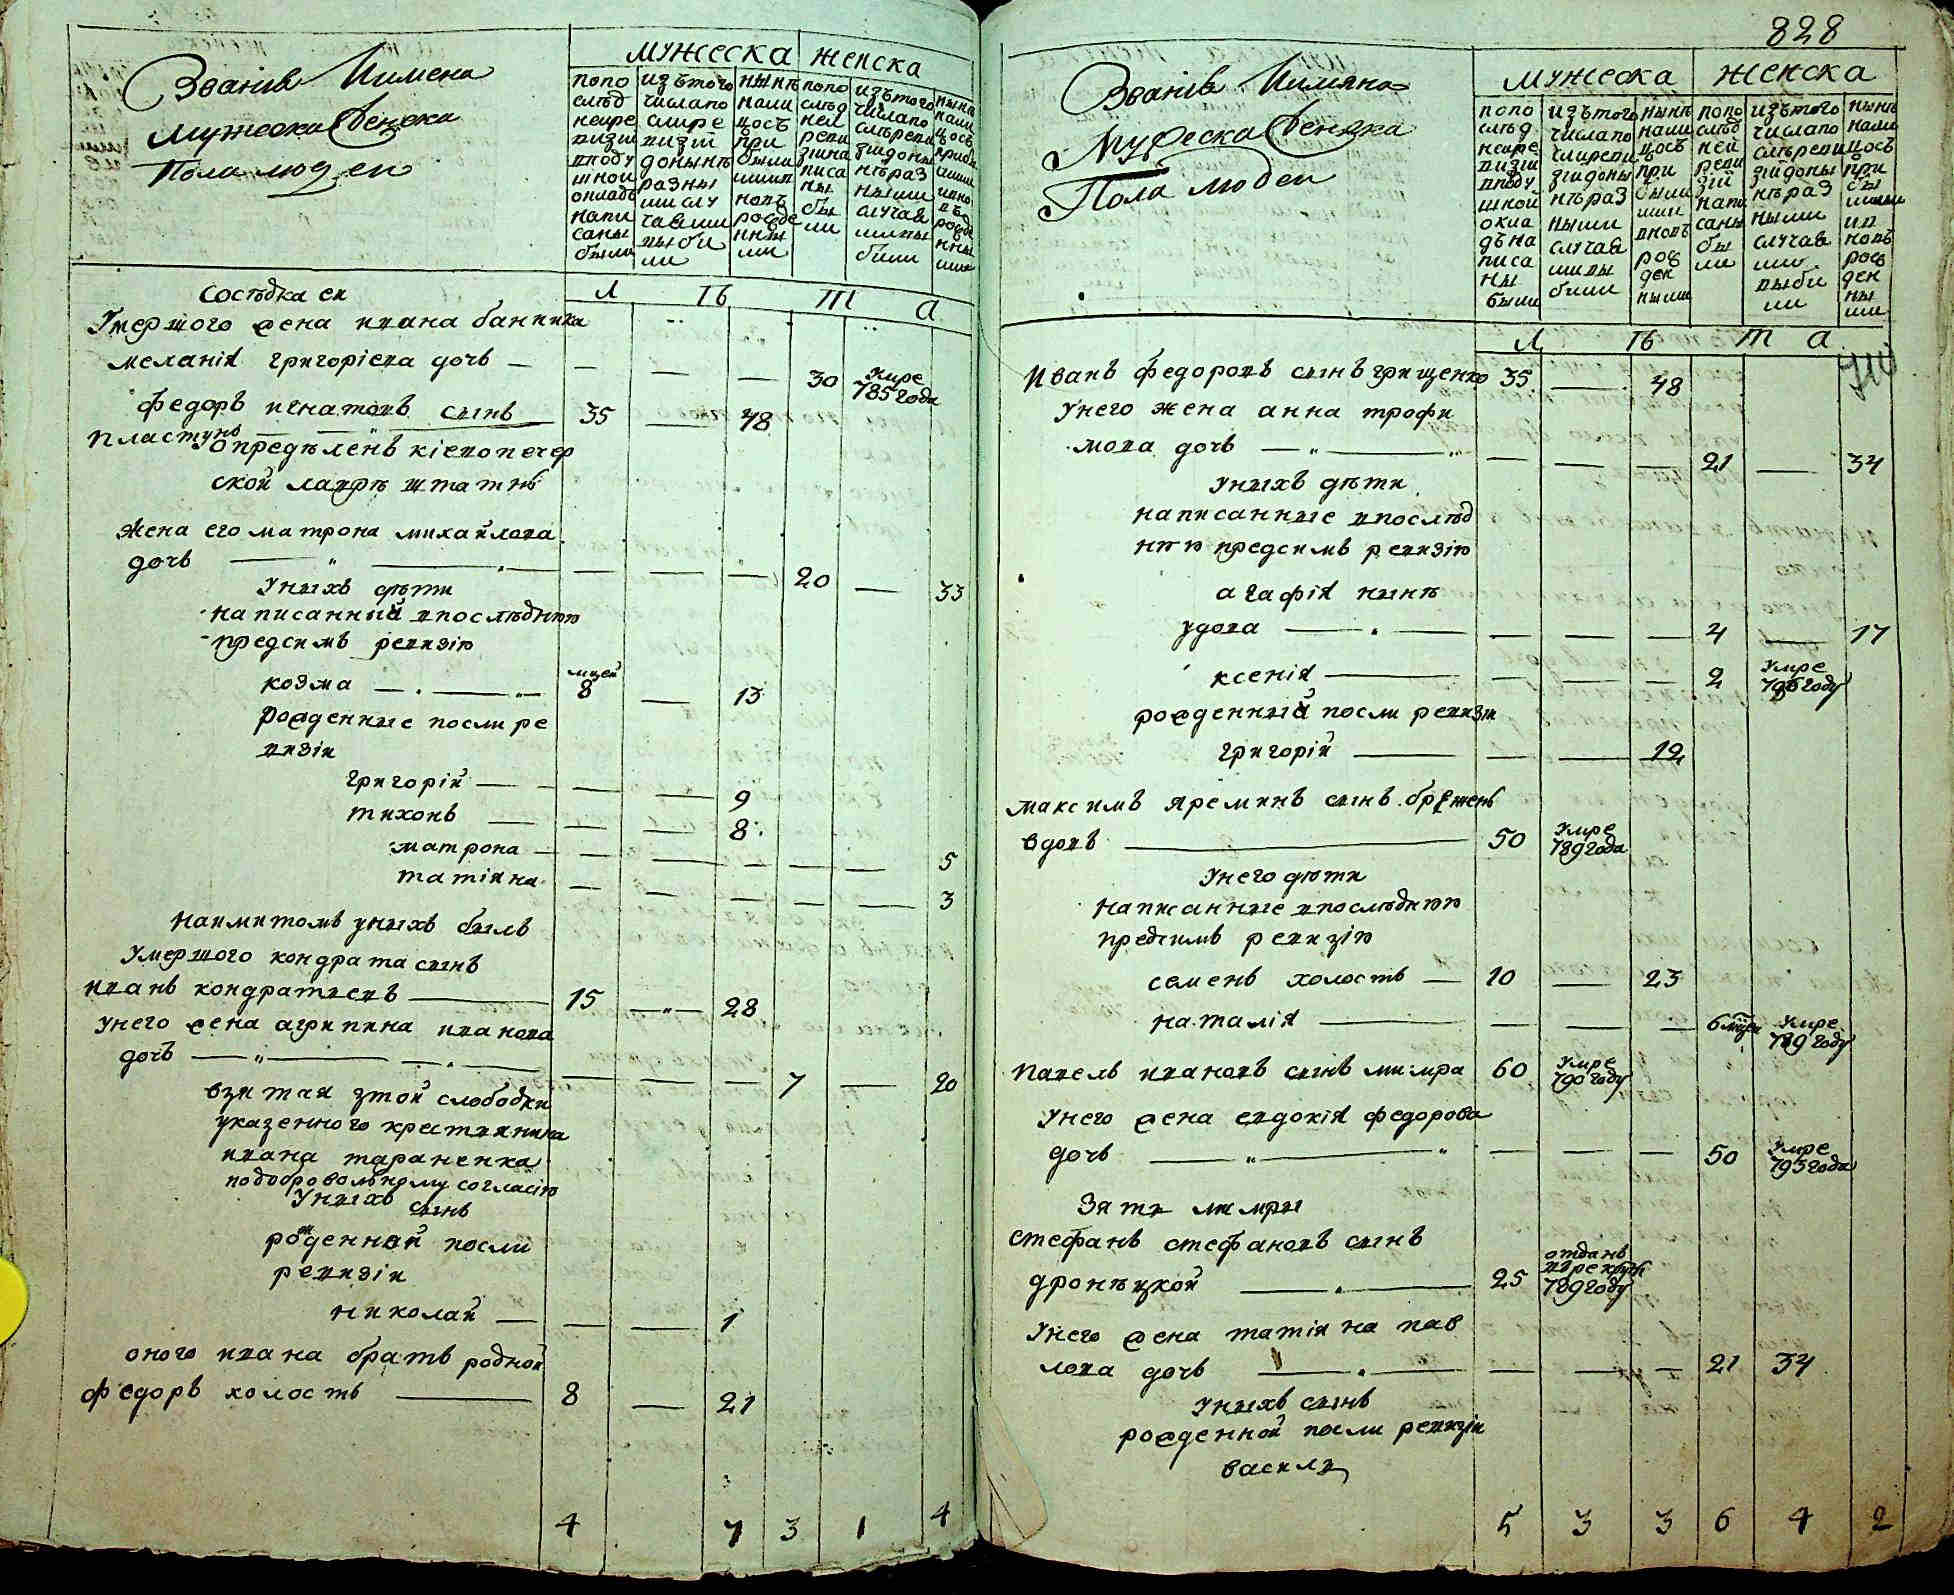 828
Званія Имена
Мужеска Женска
Пола людеи
мужеска женска
попо
слѣд
неире
визіи
вподу
шнои
окладъ
напи
саны
были
изътого
числапо
слире
визіи
донынѣ
разны
ми слу
чаями
выбы
ли
нынѣ
нали
цосъ
при
были
ми и
новъ
рожде
нны
ми
попо
слѣд
неи
реви
зіина
писа
ны
бы
ли
изътого
числапо
слѣреви
зіидоны
нѣраз
ными
случая
мивы
были
нынѣ
нали
цосъ
л ѣ т а
Сосѣдка ея
Умершого жена ивана банника
меланія григоріева дочь — — — — 30 умре
785 года
федоръ игнатовъ сынъ 35 — 48
пластунъ
опредѣленъ кіевопечер
ской лаврѣ штатнъ
жена его матрона михайлова
дочь — — — 20 — 33
Уныхъ дѣти
написанный впослѣднюю
предсимъ ревизію
козма мцей
8 — 13
рожденные посли ре
визіи
григорій — — 9
тихонъ — — 8
матрона — — — — — 5
татіяна — — — — — 3
наимитомъ уныхъ былъ
умершого кондрата сынъ
иванъ кондратіевъ 15 — 28
унего жена агрипина иванова
дочь — — — 7 — 20
взятая зтой слободки
указенного крестянина
ивана тараненка
подобровольному согласію
Уныхъ сынъ
рожденной посли
ревизіи
николай — — 1
оного ивана братъ родной
федоръ холостъ 8 — 21
4 7 3 1 4
Званія Имяна
Мужеска Женска
Пола людеи
мужеска женска
попо
слѣд
неире
визіи
вподу
шнои
окла
дъна
писа
ны
были
изътого
числапо
слиреви
зіидоны
нѣраз
ными
случая
мивы
были
нынѣ
нали
цосъ
при
были
ми
вновъ
рож
ден
ными
попо
слѣд
неи
реви
зіи
напи
саны
бы
ли
изътого
числапо
слѣреви
зіидоны
нѣраз
ными
случая
ми
выбы
ли
нынѣ
нали
цосъ
при
бы
лими
ив
новъ
рож
ден
ны
ми
л ѣ т а
Иванъ федоровъ сынъ грищенко 35 — 48
Унего жена анна трофи
мова дочь — — — 21 — 34
уныхъ дѣти
написанные впослѣд
нюю предсимъ ревизію
агафія нынѣ
удова — — — 4 — 17
ксенія — — — 2 умре
796 году
рожденный посли ревизіи
григорій — — 12
максимъ яреминъ сынъ бражень
вдовъ 50 умре
789 года
Унего дѣти
написанные впослѣднюю
предсимъ ревизію
семенъ холостъ 10 — 23
наталія — — — 6 мцей умре
789 году
павелъ ивановъ сынъ мимра 60 умре
790 году
унего жена евдокія федорова
дочь — — — 50 умре
795 года
Зять мимры
стефанъ стефановъ сынъ
дронѣцкой 25 отданъ
врекруты
789 году
Унего жена татіяна пав
лова дочь — — — 21 34
уныхъ сынъ
рожденной посли ревизіи
василь
5 3 3 6 4 2